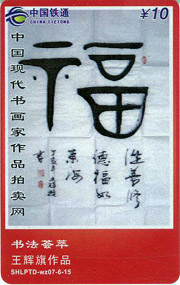 中国铁通
CHINA TIETONG
¥10
中国现代书画家作品拍卖网
福
德福如
东海
书法荟萃
王辉旗作品
SHLPTD-wz07-6-15